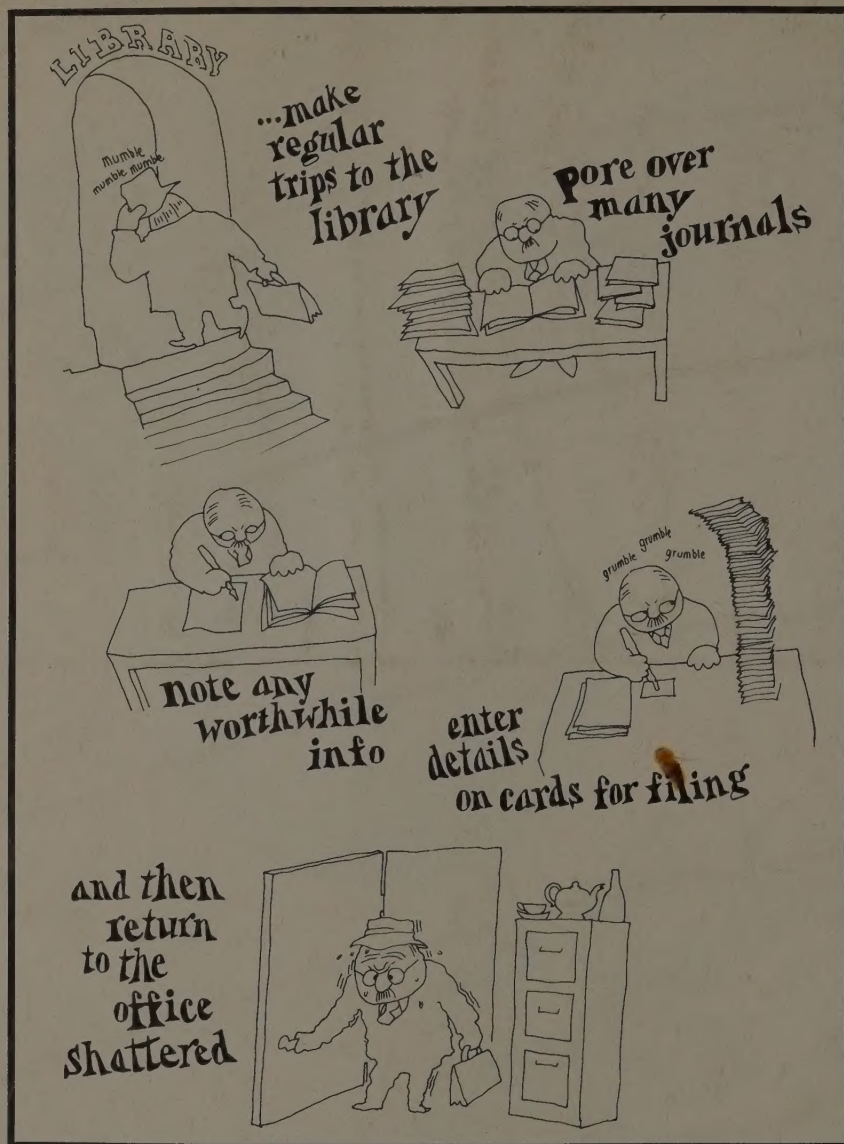 LIBRARY
mumble
mumble mumble
...make
regular
trips to the
library
Pore over
many
journals
note any
worthwhile
info
grumble grumble grumble
enter
details
on cards for filing
and then
return
to the
office
shattered